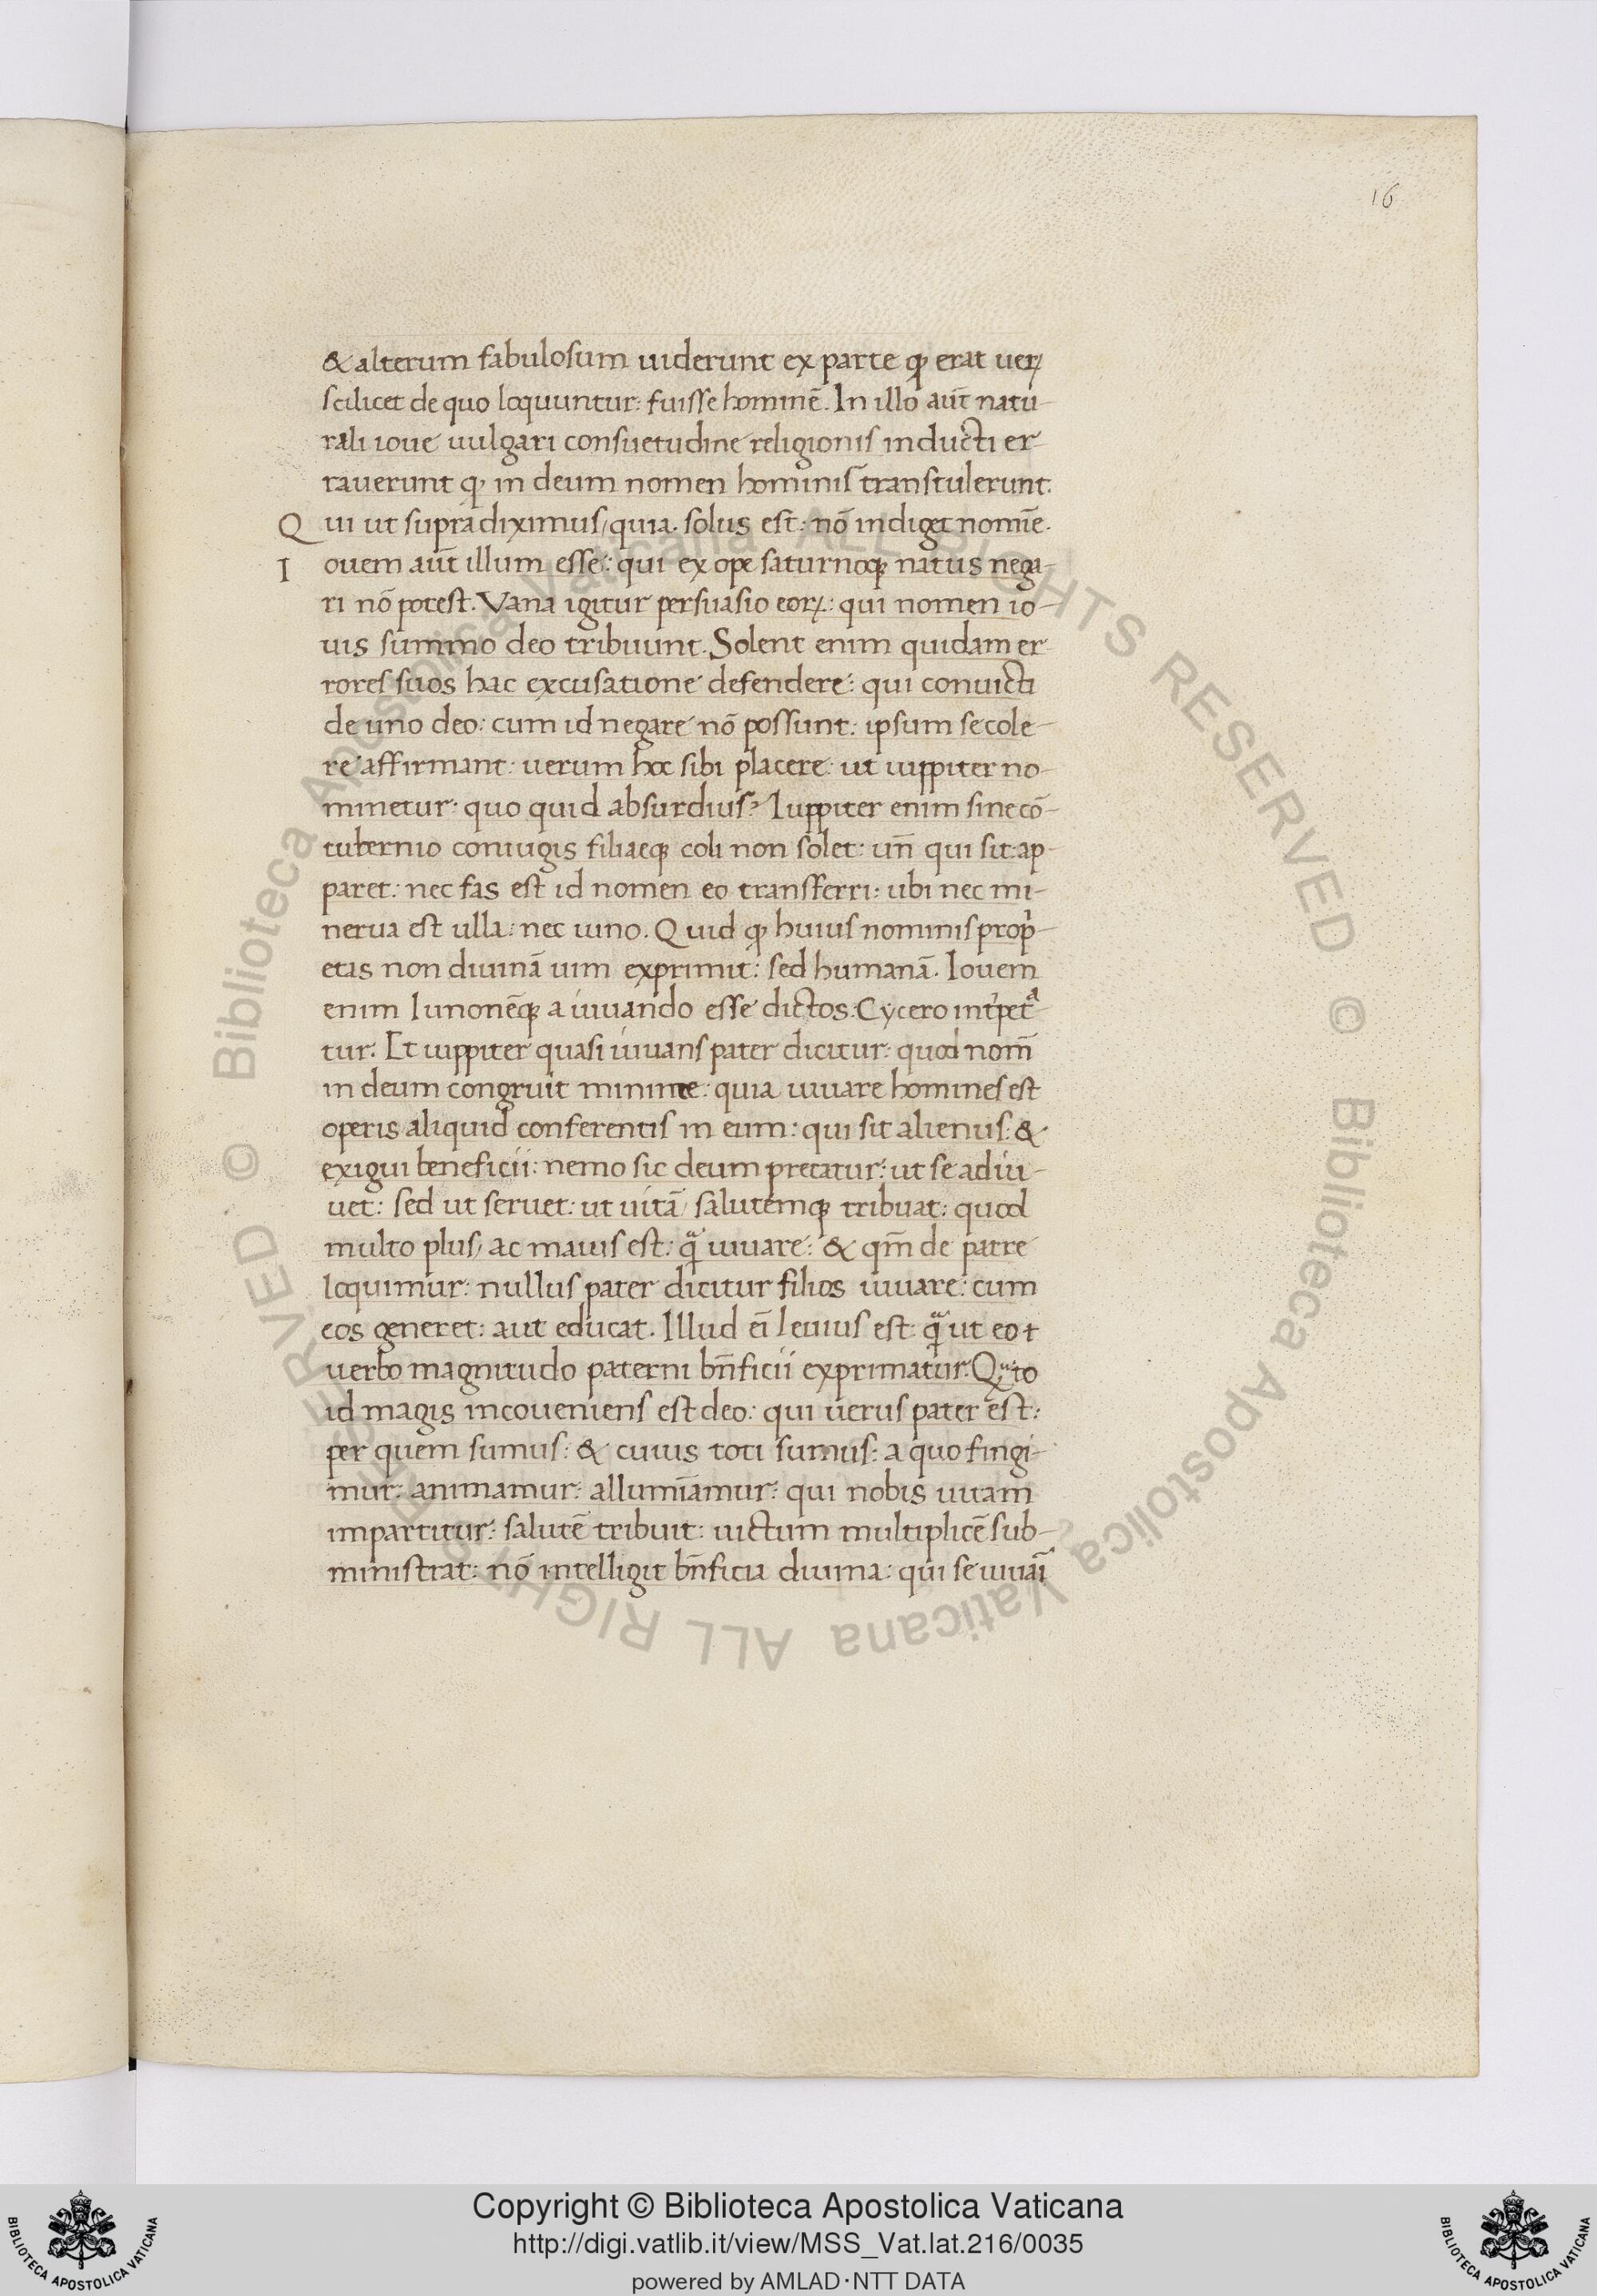 16
& alterum fabulosum uiderunt ex parte ꝙ erat ueꝝ
scilicet de quo loquuntur: fuisse hominē. In illo aut̄ natu-
rali ioue uulgari consuetudine religionis inducti er-
rauerunt ꝙ in deum nomen hominis transtulerunt.
Qui ut supra diximus/ quia solus est: nō indiget nomīe.
Iouem aut̄ illum esse: qui ex ope saturnoqꝫ natus nega-
ri nō potest. Vana igitur persuasio eoꝝ: qui nomen io-
uis summo deo tribuunt. Solent enim quidam er-
rores suos hac excusatione defendere: qui conuicti
de uno deo: cum id negare nō possunt: ipsum se cole-
re affirmant: uerum hoc sibi placere: ut iuppiter no-
minetur: quo quid absurdius? Iuppiter enim sine cō-
tubernio coniugis filiaeqꝫ coli non solet: un̄ qui sit ap-
paret: nec fas est id nomen eo transferri: ubi nec mi-
nerua est ulla: nec iuno. Quid ꝙ huius nominis propi-
etas non diuinā uim exprimit: sed humanā. Iouem
enim Iunonēqꝫ a iuuando esse dictos Cycero int̄pͭeta-
tur. Et iuppiter quasi iuuans pater dicitur: quod nom̄
in deum congruit minime: quia iuuare homines est
operis aliquid conferentis in eum: qui sit alienus: &
exigui beneficii: nemo sic deum precatur: ut se adiu-
uet: sed ut seruet: ut uitā/ salutemqꝫ tribuat: quod
multo plus/ ac maius est: qͣ̄ iuuare: & qm̄ de patre
loquimur: nullus pater dicitur filios iuuare: cum
eos generet: aut educat. Illud eī leuius est: qͣ̄ ut eo
uerbo magnitudo paterni bn̄ficii exprimatur. Qͣ̄to
id magis incoueniens est deo: qui uerus pater est:
per quem sumus: & cuius toti sumus: a quo fingi-
mur: animamur: allumīamur: qui nobis uitam
impartitur: salutē tribuit: uictum multiplicē sub-
ministrat: nō intelligit bn̄ficia diuina: qui se iuuaī
Copyright © Biblioteca Apostolica Vaticana
http://digi.vatlib.it/view/MSS_Vat.lat.216/0035
powered by AMLAD·NTT DATA
BIBLIOTECA APOSTOLICA VATICANA
BIBLIOTECA APOSTOLICA VATICANA
© Biblioteca Apostolica Vaticana ALL RIGHTS RESERVED © Biblioteca Apostolica Vaticana ALL RIGHTS RESERVED